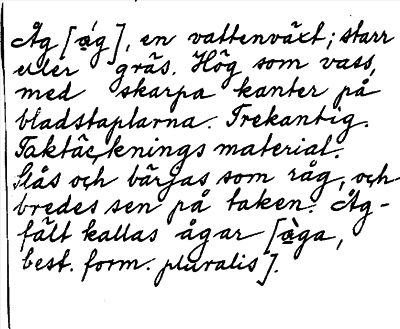 Åg [a̱´g], en vattenväxt; starr
eller gräs. Hög som vass,
med skarpa kanter på
bladstaplarna. Trekantig.
Taktäckningsmaterial.
Slås och bärgas som råg, och
bredes sen på taken. Åg-
fält kallas ågar [a̱`ga,
best. form. pluralis].